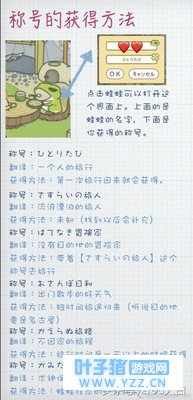 称号的获得方法
OK
キャンセル
点击蛙蛙可以打开这
个界面上。上面的是
蛙蛙的名字，下面是
你获得的称号。
称号：ひとりたび
翻译：一个人的旅行
获得方法：第一次旅行回来就会获得。
称号：さすらいの旅人
翻译：流浪漂泊的旅人
获得方法：未知（找到以后会补充）
称号：はてなき冒険家
翻译：没有目的地的冒险家
获得方法：带着【さすらいの旅人】这个
称号去旅行
称号：おさんぽ日和
翻译：出门散步的好天气
获得方法：短时间给速归来（听说目的地
要是名古屋）
称号：かえらぬ蛙
翻译：不回家的旅程
获得方法：旅行时间
叶子猪游戏网
www.YZZ.cn